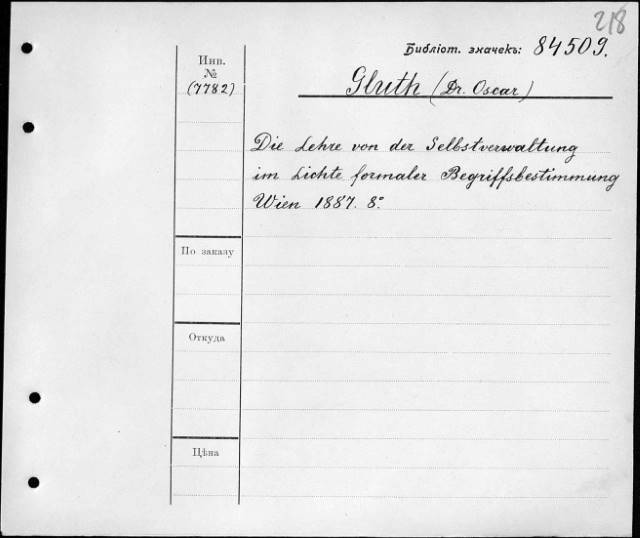 218
Библіот. значекъ: 84509.
Инв.
№
(7782)
Gluth (Dr. Oscar)
Die Lehre von der Selbstverwaltung
im Lichte formaler Begriffsbestimmung
Wien 1887. 8°
По заказу
Откуда
Цѣна